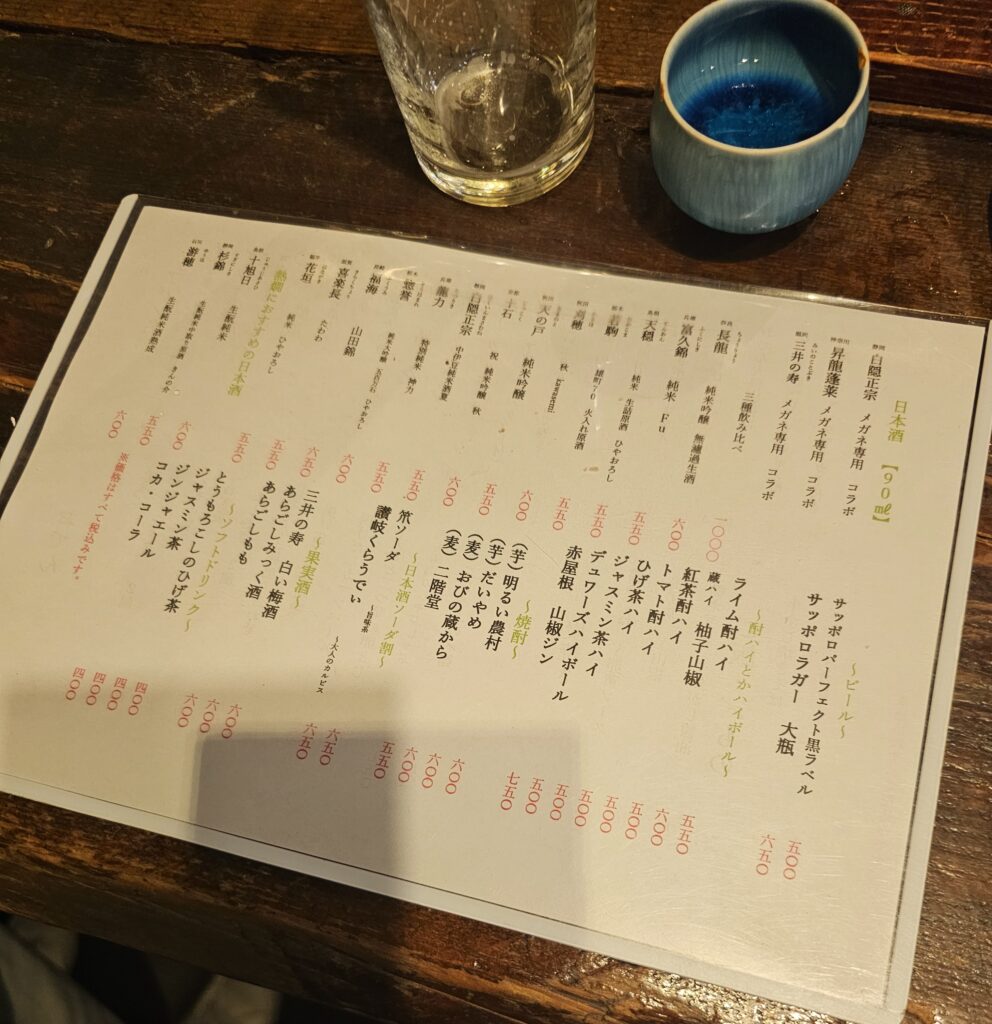 日本酒 【90㎖】
静岡 白隠正宗 メガネ専用 コラボ
神奈川 昇龍蓬莱 メガネ専用 コラボ
福岡 三井の寿 メガネ専用 コラボ
三種飲み比べ 一〇〇〇
奈良 長龍 純米吟醸 無濾過生酒 六〇〇
兵庫 富久錦 純米 Fu 五五〇
島根 天穏 純米 生詰原酒 ひやおろし 五五〇
栃木 若駒 雄町70 火入れ原酒 五五〇
秋田 秋 kawasemi 六〇〇
秋田 天の戸 純米吟醸 五五〇
十石 祝 純米吟醸 秋 六〇〇
静岡 白隠正宗 中伊豆純米酒夏 五五〇
兵庫 龍力 特別純米 神力 五五〇
栃木 惣誉 純米大吟醸 五百万石 ひやおろし 六〇〇
福海 山田錦
滋賀 喜楽長 六五〇
福井 花垣 純米 ひやおろし 五五〇
熱燗におすすめの日本酒
島根 十旭日 生酛純米 五五〇
静岡 杉錦 生酛純米中取り原酒 きんの介 六〇〇
石川 遊穂 生酛純米酒熟成 五五〇
六〇〇
※価格はすべて税込みです。
～ビール～
サッポロパーフェクト黒ラベル 五〇〇
サッポロラガー 大瓶 六五〇
～酎ハイとかハイボール～
ライム酎ハイ 五五〇
蔵ハイ 柚子山椒 六〇〇
紅茶酎ハイ 五〇〇
トマト酎ハイ 五〇〇
ひげ茶ハイ 五〇〇
ジャスミン茶ハイ 五〇〇
デュワーズハイボール 五〇〇
赤屋根 山椒ジン 七五〇
～焼酎～
(芋) 明るい農村 六〇〇
(芋) だいやめ 六〇〇
(麦) おびの蔵から 六〇〇
(麦) 二階堂 五五〇
～日本酒ソーダ割～
笊ソーダ ～大人のカルピス 六五〇
讃岐くらうでぃ ～旨味系 六五〇
～果実酒～
三井の寿 白い梅酒 六〇〇
あらごしみっく酒 六〇〇
あらごしもも 六〇〇
～ソフトドリンク～
とうもろこしのひげ茶 四〇〇
ジャスミン茶 四〇〇
ジンジャエール 四〇〇
コカ・コーラ 四〇〇